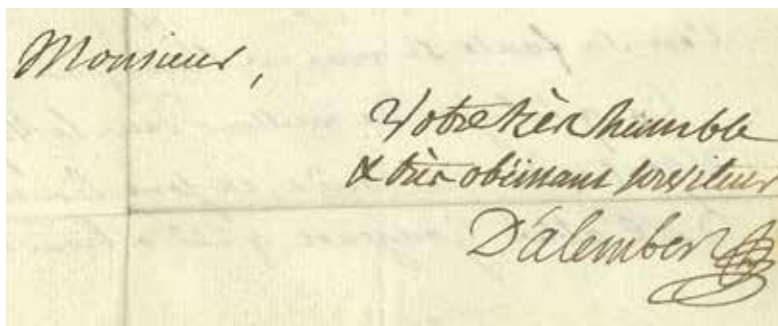 Monsieur,
Votre très humble
& très obéissant serviteur
D'alembert